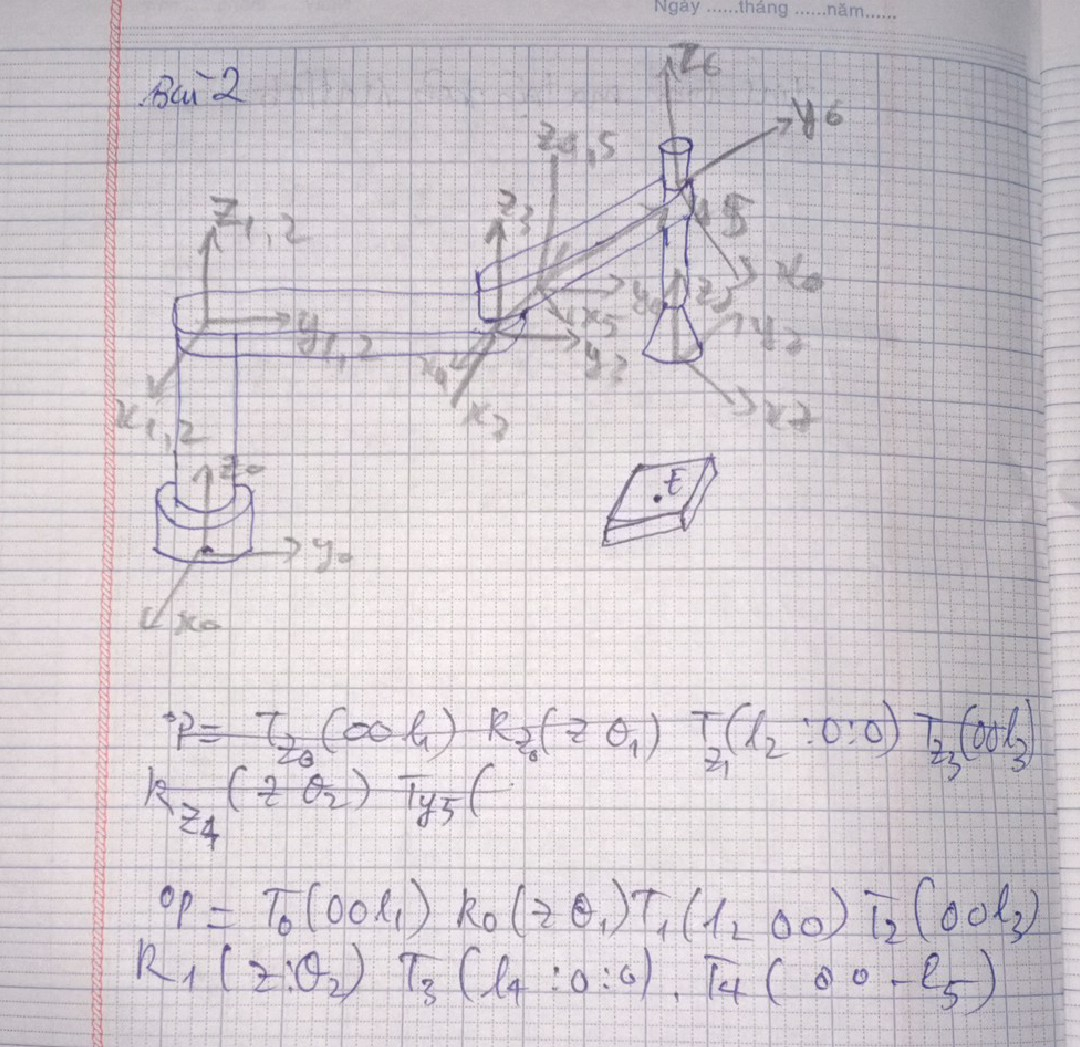 Ngày ......tháng ......năm......
Bài 2
Z6
y6
Z4,5
Z3
Z1,2
x6
y1,2
x5
y3
x1,2
x3
Z0
t
y0
x0
°P = T_Z0 (0 0 l1) R_Z0 (z θ1) T_Z1 (l2 : 0 : 0) T_Z3 (0 0 l3)
R_Z4 (z θ2) T_y5 (
°P = T0 (0 0 l1) R0 (z θ1) T1 (l2 0 0) T2 (0 0 l3)
R1 (z : θ2) T3 (l4 : 0 : 0) . T4 ( 0 0 -l5)